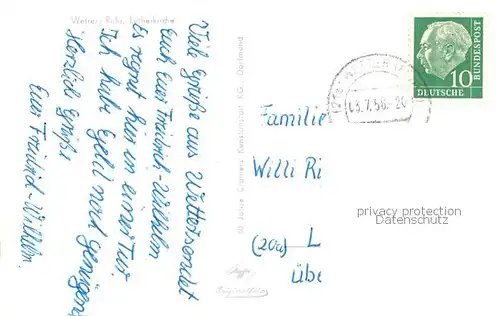 Wetter, Ruhr, Lutherkirche
Viele Grüße aus Wetter sendet
Euch Euer Friedrich-Wilhelm
Es regnet hier in einer Tur.
Ich habe Geld noch genügend
Herzliche Grüße
Euer Friedrich-Wilhelm.
50 Jahre Cramers Kunstanstalt KG. Dortmund
03.7.56.-20
DEUTSCHE
BUNDESPOST
10
Familie
Willi Ri
(20a) L
übe
privacy protection
Datenschutz